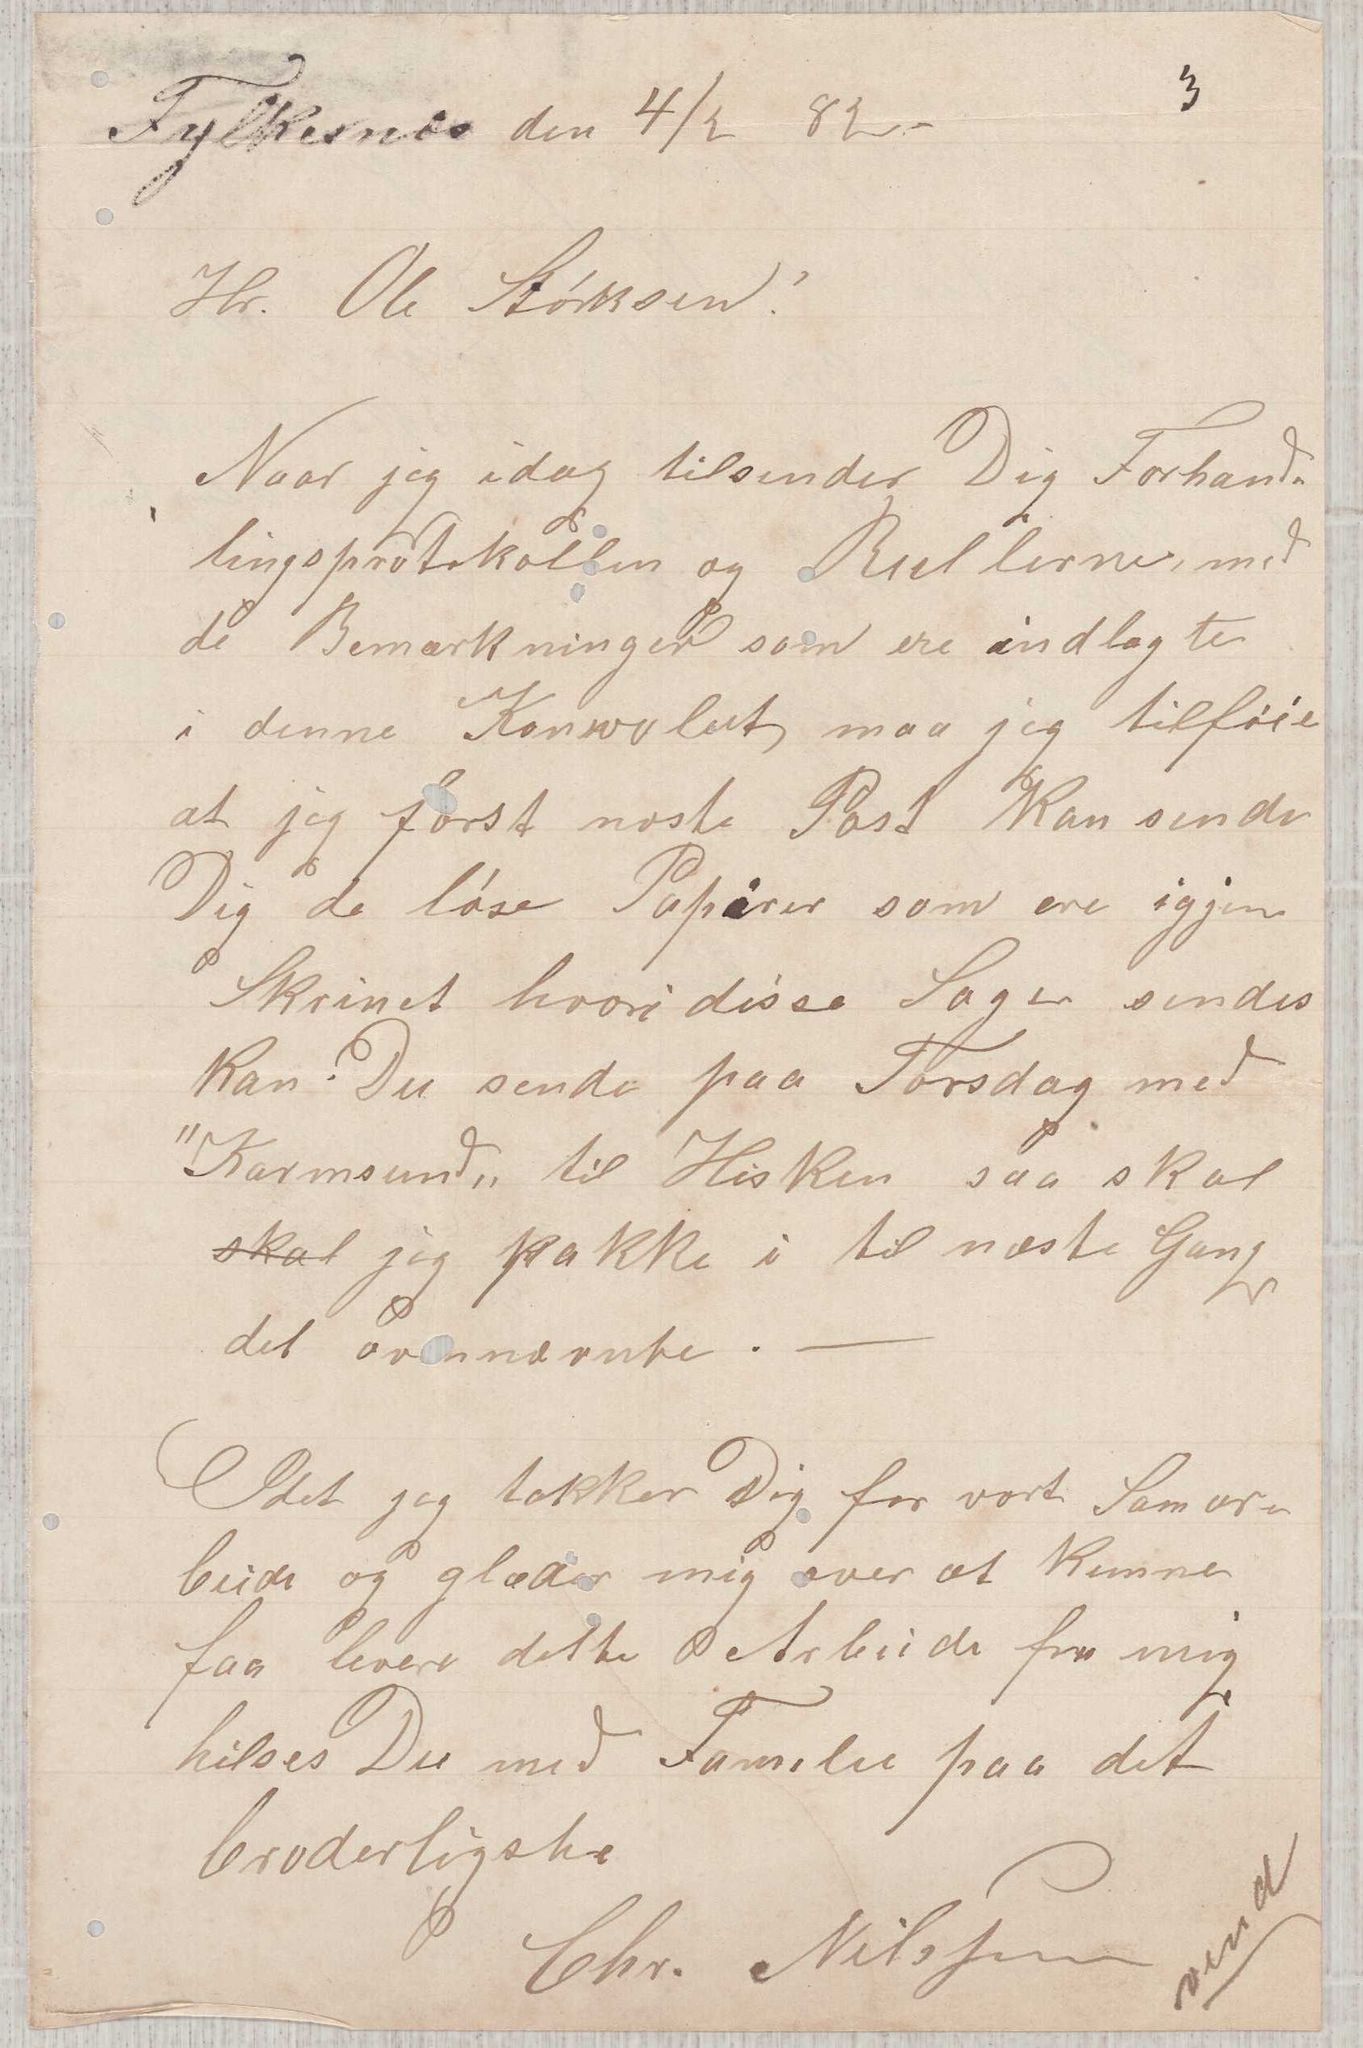 3
Fylkesnæs den 4/2 82
Hr. Ole Störksen!
Naar jeg idag tilsender Dig Forhand-
lingsprotokollen og Rullerne, med
de Bemærkninger som ere indlagte
i denne Konvolut, maa jeg tilföie
at jeg först næste Post Kan sende
Dig de löse Papirer som ere igjen
Skrinet hvori disse Sager sendes
Kan Du sende paa Torsdag med
"Karmsund" til Hisken saa skal
skal jeg pakke i til næste Gang
det ovennævnte. —
Idet jeg takker Dig for vort Samar-
beide og glæder mig over at Kunne
faa levere dette Arbeide fra mig
hilses Du med Familie paa det
broderligste
Chr. Nilssen
vend